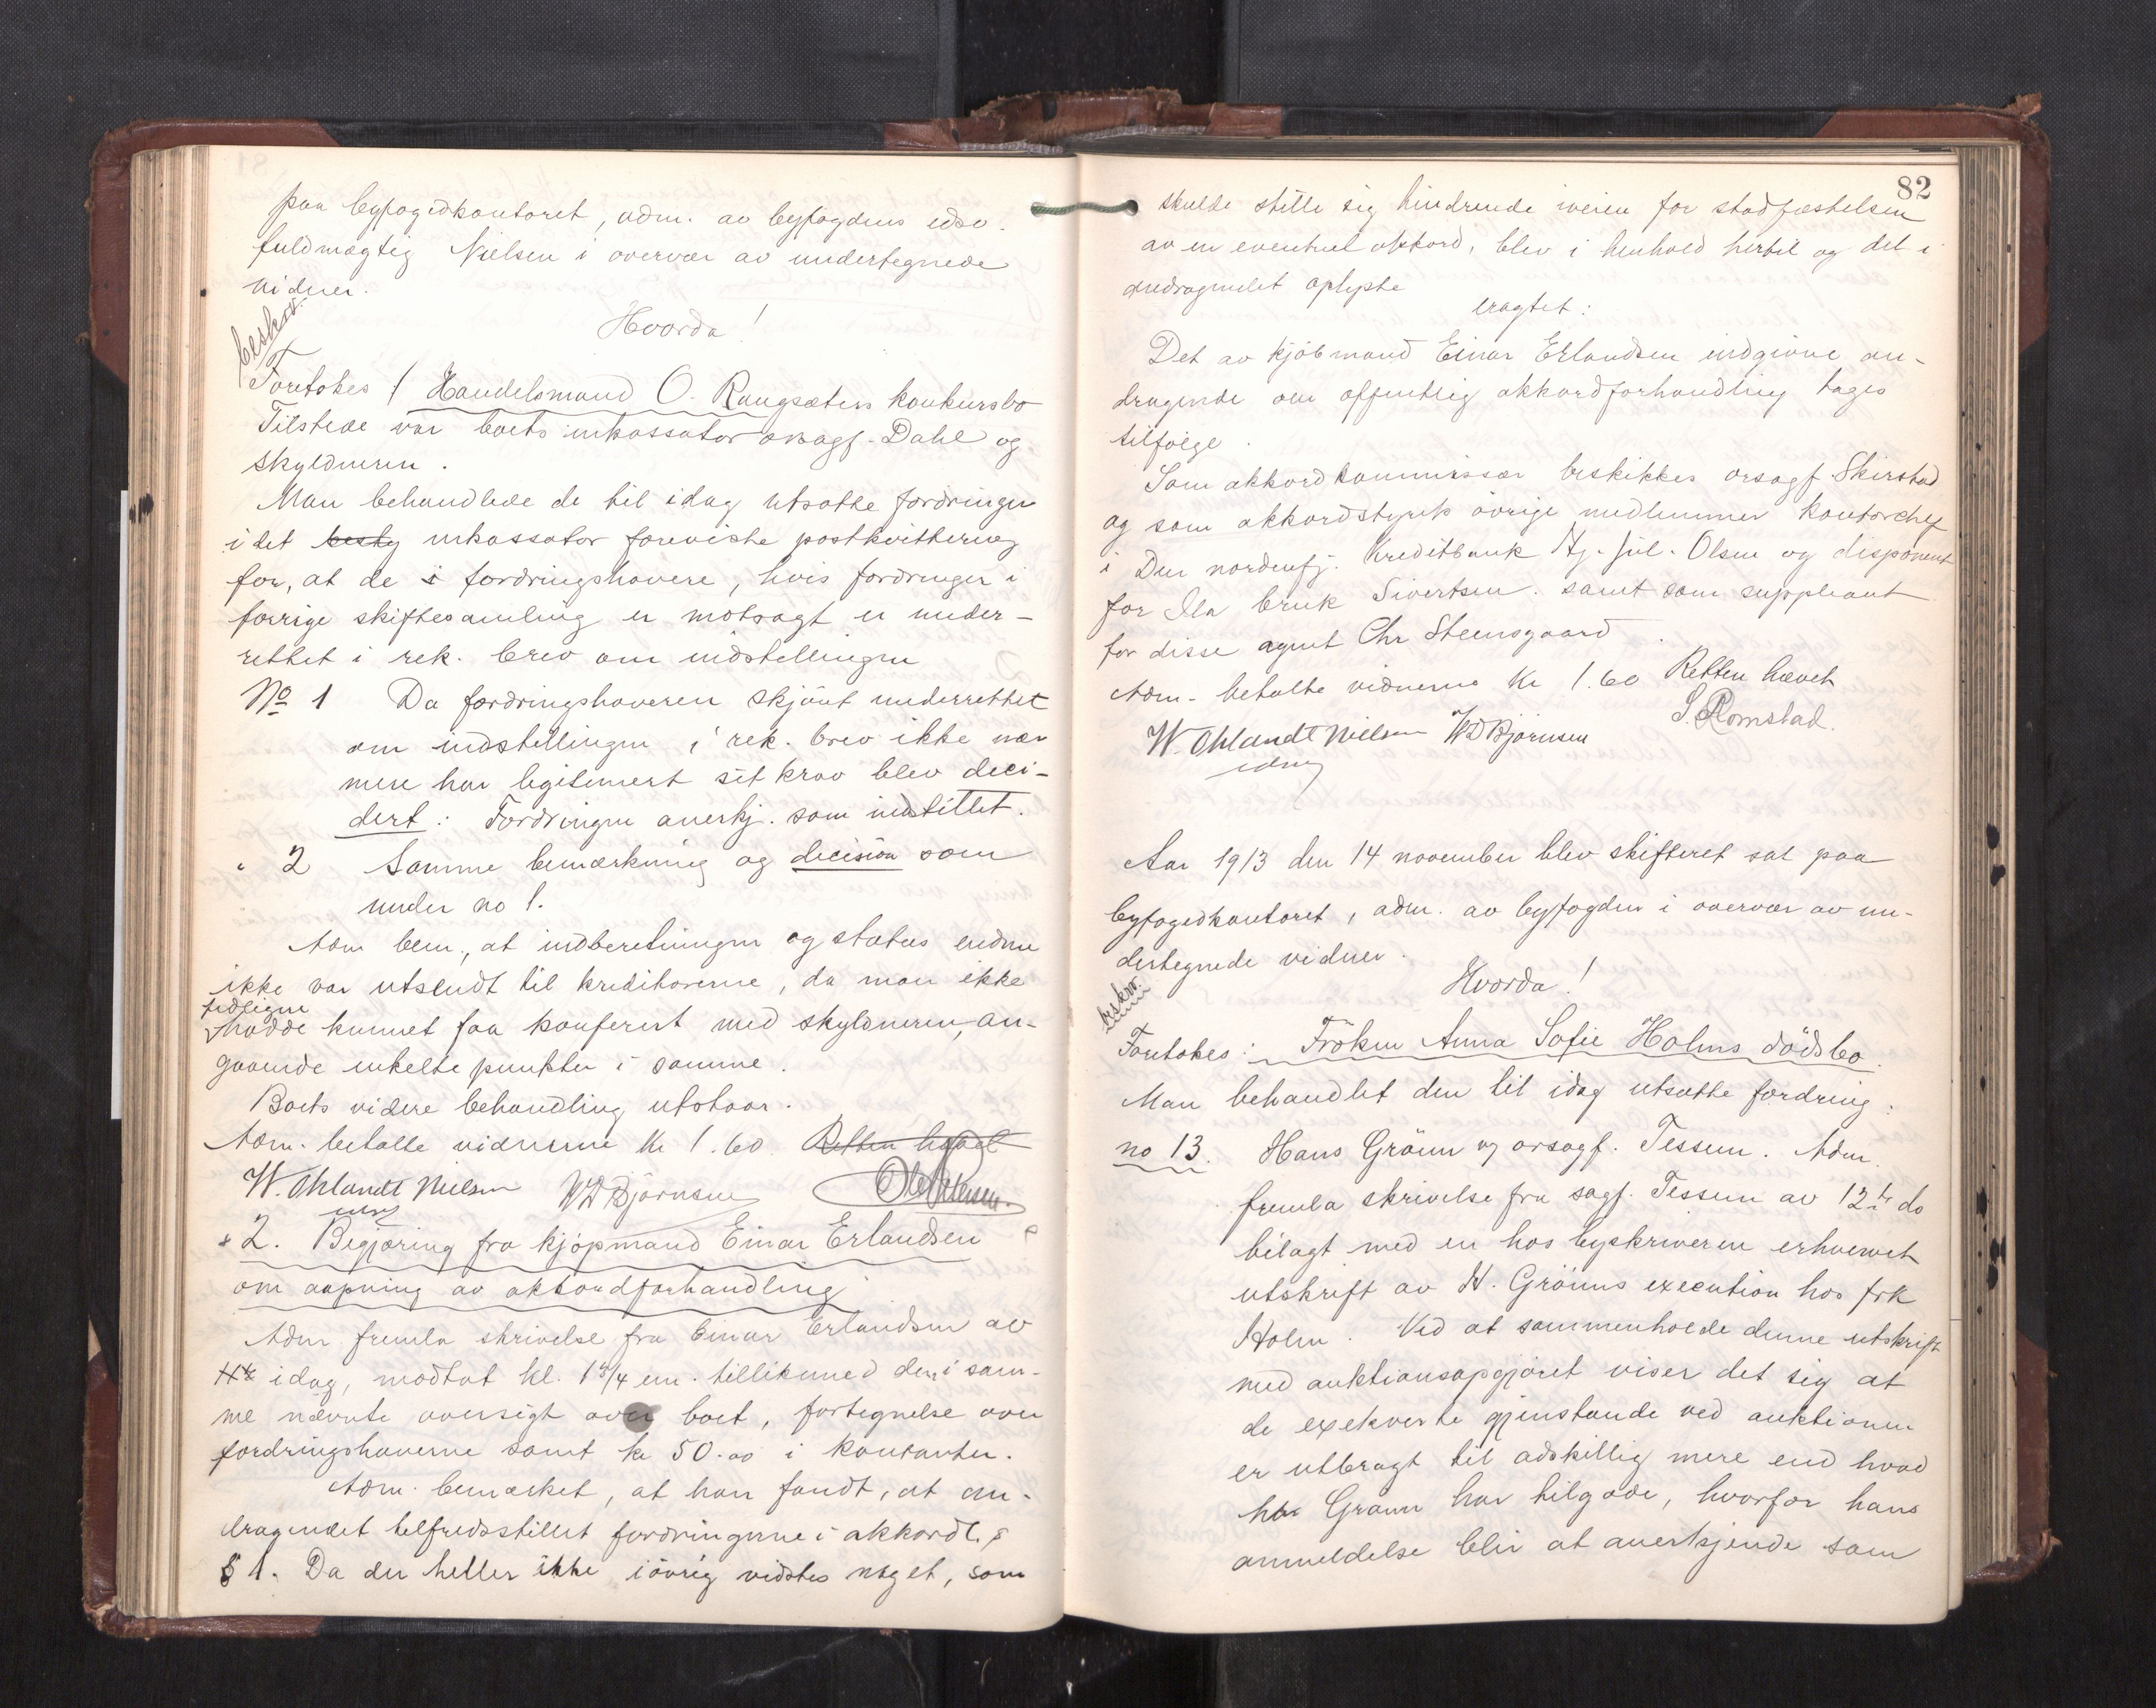 paa byfogedkontoret, adm. av byfogdens edsv.
fuldmægtig Nielsen i overvær av undertegnede
vidner.
Hvorda!
beskr.
Foretokes 1 Handelsmand O. Rangsæters konkursbo
Tilstede var boets inkassator orsagf. Dahl og
skyldneren.
Man behandlede de til idag utsatte fordringer
idet besty inkassator foreviste postkvittering
for, at de i fordringshavere, hvis fordringer i
forrige skiftesamling er motsagt er under-
rettet i rek. brev om indstillingen
No 1 Da fordringshaveren skjønt underrettet
om indstillingen i rek. brev ikke nær
mere har legitimert sit krav blev deci-
dert: Fordringen anerkj. som indstillet.
" 2 Samme bemærkning og decision som
under no 1.
Adm bem., at indberetningen og status endnu
ikke var utsendt til kreditorerne, da man ikke
tidligere
hadde kunnet faa konferert med skyldneren, an-
gaaende enkelte punkter i samme.
Boets videre behandling utstaar.
Adm. betalte vidnerne Kr 1.60. Retten hævet
W. Ohlandt Nielsen WD Bjørnsen
edsv
2. Begjæring fra kjøpmand Einar Erlandsen
om aapning av akkordforhandling
Adm fremla skrivelse fra Einar Erlandsen av
idag, modtat kl. 1 3/4 em. tillikemed den i sam-
me nævnte oversigt over boet, fortegnelse over
fordringshaverne samt kr 50.00 i kontanter.
Adm. bemærket, at han fandt, at an-
dragendet tilfredsstillet fordringerne i akkordl.s
§ 1. Da der heller ikke iøvrig vidstes noget, som
82
skulde stille sig hindrende iveien for stadfæstelsen
av en eventuel akkord, blev i henhold hertil og det i
andragendet oplyste
eragtet:
Det av kjøbmand Einar Erlandsen indgivne an-
dragende om offentlig akkordforhandling tages
tilfølge.
Som akkordkommissær beskikkes orsagf Skirstad
og som akkordstyrets øvrige medlemmer kontorchef
i Den nordenfj. Kreditbank Hj. Jul. Olsen og disponent
for Ila bruk Sivertsen. samt som suppleant
for disse agent Chr Steensgaard.
Adm. betalte vidnerne Kr 1.60 Retten hævet
W. Ohlandt Nielsen WD Bjørnsen S. Romstad.
edsv
Aar 1913 den 14 november blev skifteret sat paa
byfogedkontoret, adm. av byfogden i overvær av un-
dertegnede vidner.
Hvorda!
beskr.
Foretokes: Frøken Anna Sofie Holms dødsbo.
Man behandlet den til idag utsatte fordring:
no 13. Hans Grønn v/ orsagf. Tessem. Adm.
fremla skrivelse fra sagf. Tessem av 12te ds
bilagt med en hos byskriveren erhvervet
utskrift av H. Grønns execution hos frk
Holm. Ved at sammenholde denne utskrift
med auktionsopgjøret viser det sig at
de exekverte gjenstande ved auktionen
er utbragt til adskillig mere end hvad
har Grønn har tilgode, hvorfor hans
anmeldelse blir at anerkjende som